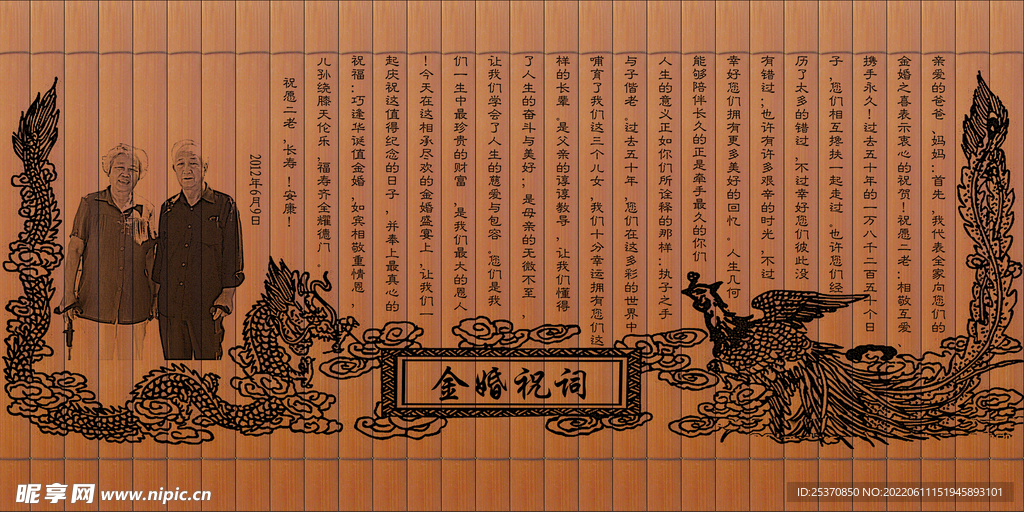 亲爱的爸爸、妈妈：首先，我代表全家向您们的
金婚之喜表示衷心的祝贺！祝愿二老：相敬互爱、
携手永久！过去五十年的一万八千二百五十个日
子，您们相互搀扶一起走过。也许您们经
历了太多的错过，不过幸好您们彼此没
有错过；也许有许多艰辛的时光，不过
幸好您们拥有更多美好的回忆。人生几何
能够陪伴长久的正是牵手最久的你们
人生的意义正如你们所诠释的那样：执子之手
与子偕老。过去五十年，您们在这多彩的世界中
哺育了我们这三个儿女，我们十分幸运拥有您们这
样的长辈。是父亲的谆谆教导，让我们懂得
了人生的奋斗与美好；是母亲的无微不至，
让我们学会了人生的慈爱与包容。您们是我
们一生中最珍贵的财富，是我们最大的恩人
！今天在这相承尽欢的金婚盛宴上，让我们一
起庆祝这值得纪念的日子，并奉上最真心的
祝福：巧逢华诞值金婚，如宾相敬重情恩，
儿孙绕膝天伦乐，福寿齐全耀德门。
祝愿二老，长寿！安康！
2012年6月9日
金婚祝词
昵享网 www.nipic.cn
ID:25370850 NO:20220611151945893101